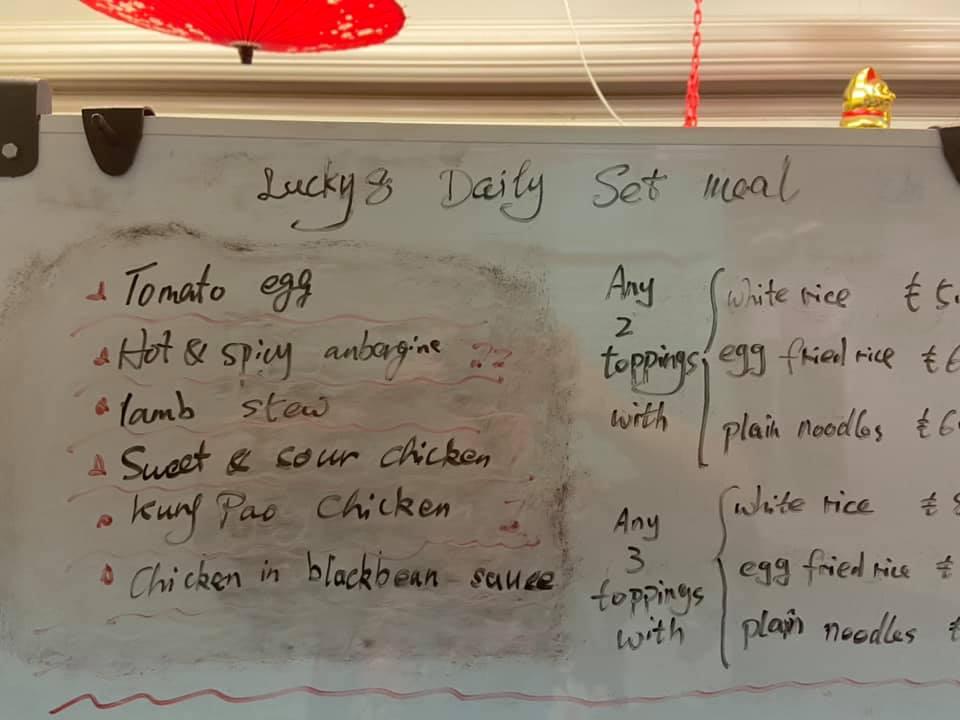 Lucky 8 Daily Set meal
Tomato egg
Hot & spicy anbergine ??
lamb stew
Sweet & sour chicken
Kung Pao Chicken
Chicken in blackbean sauce
Any
2
toppings
with
white rice £5.
egg fried rice £6
plain noodles £6.
Any
3
toppings
with
white rice £
egg fried rice £
plain noodles £